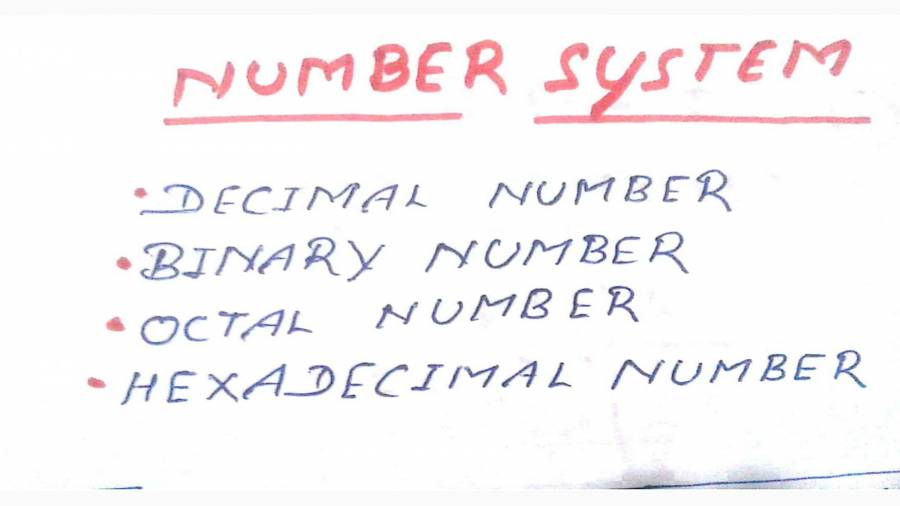 NUMBER SYSTEM
• DECIMAL NUMBER
• BINARY NUMBER
• OCTAL NUMBER
• HEXADECIMAL NUMBER